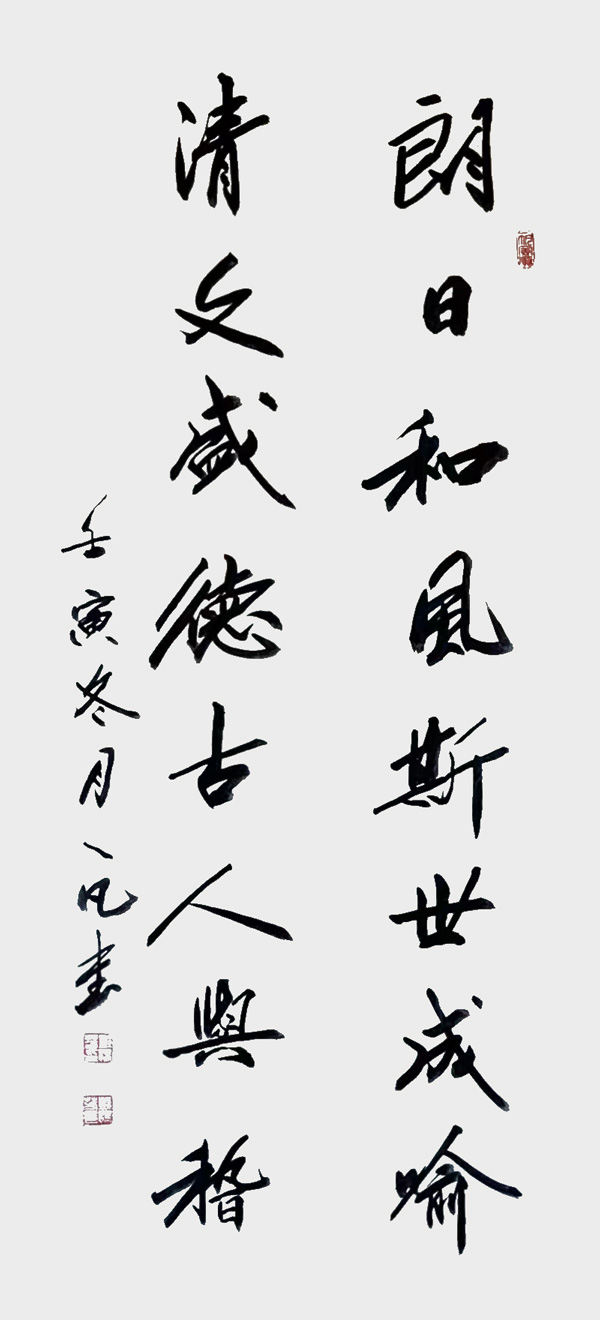 朗日和風斯世成喻
清文盛德古人與稽
壬寅冬月一凡書